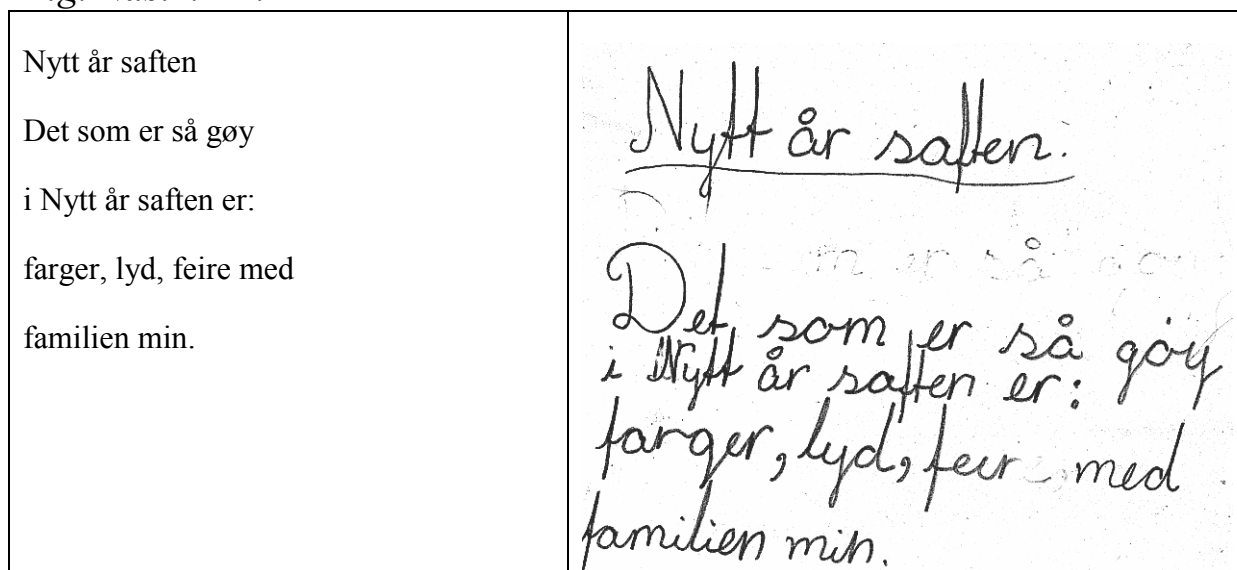 Nytt år saften
Det som er så gøy
i Nytt år saften er:
farger, lyd, feire med
familien min.
Nytt år saften.
m er så gøy
Det som er så gøy
i Nytt år saften er:
farger, lyd, feire med
familien min.